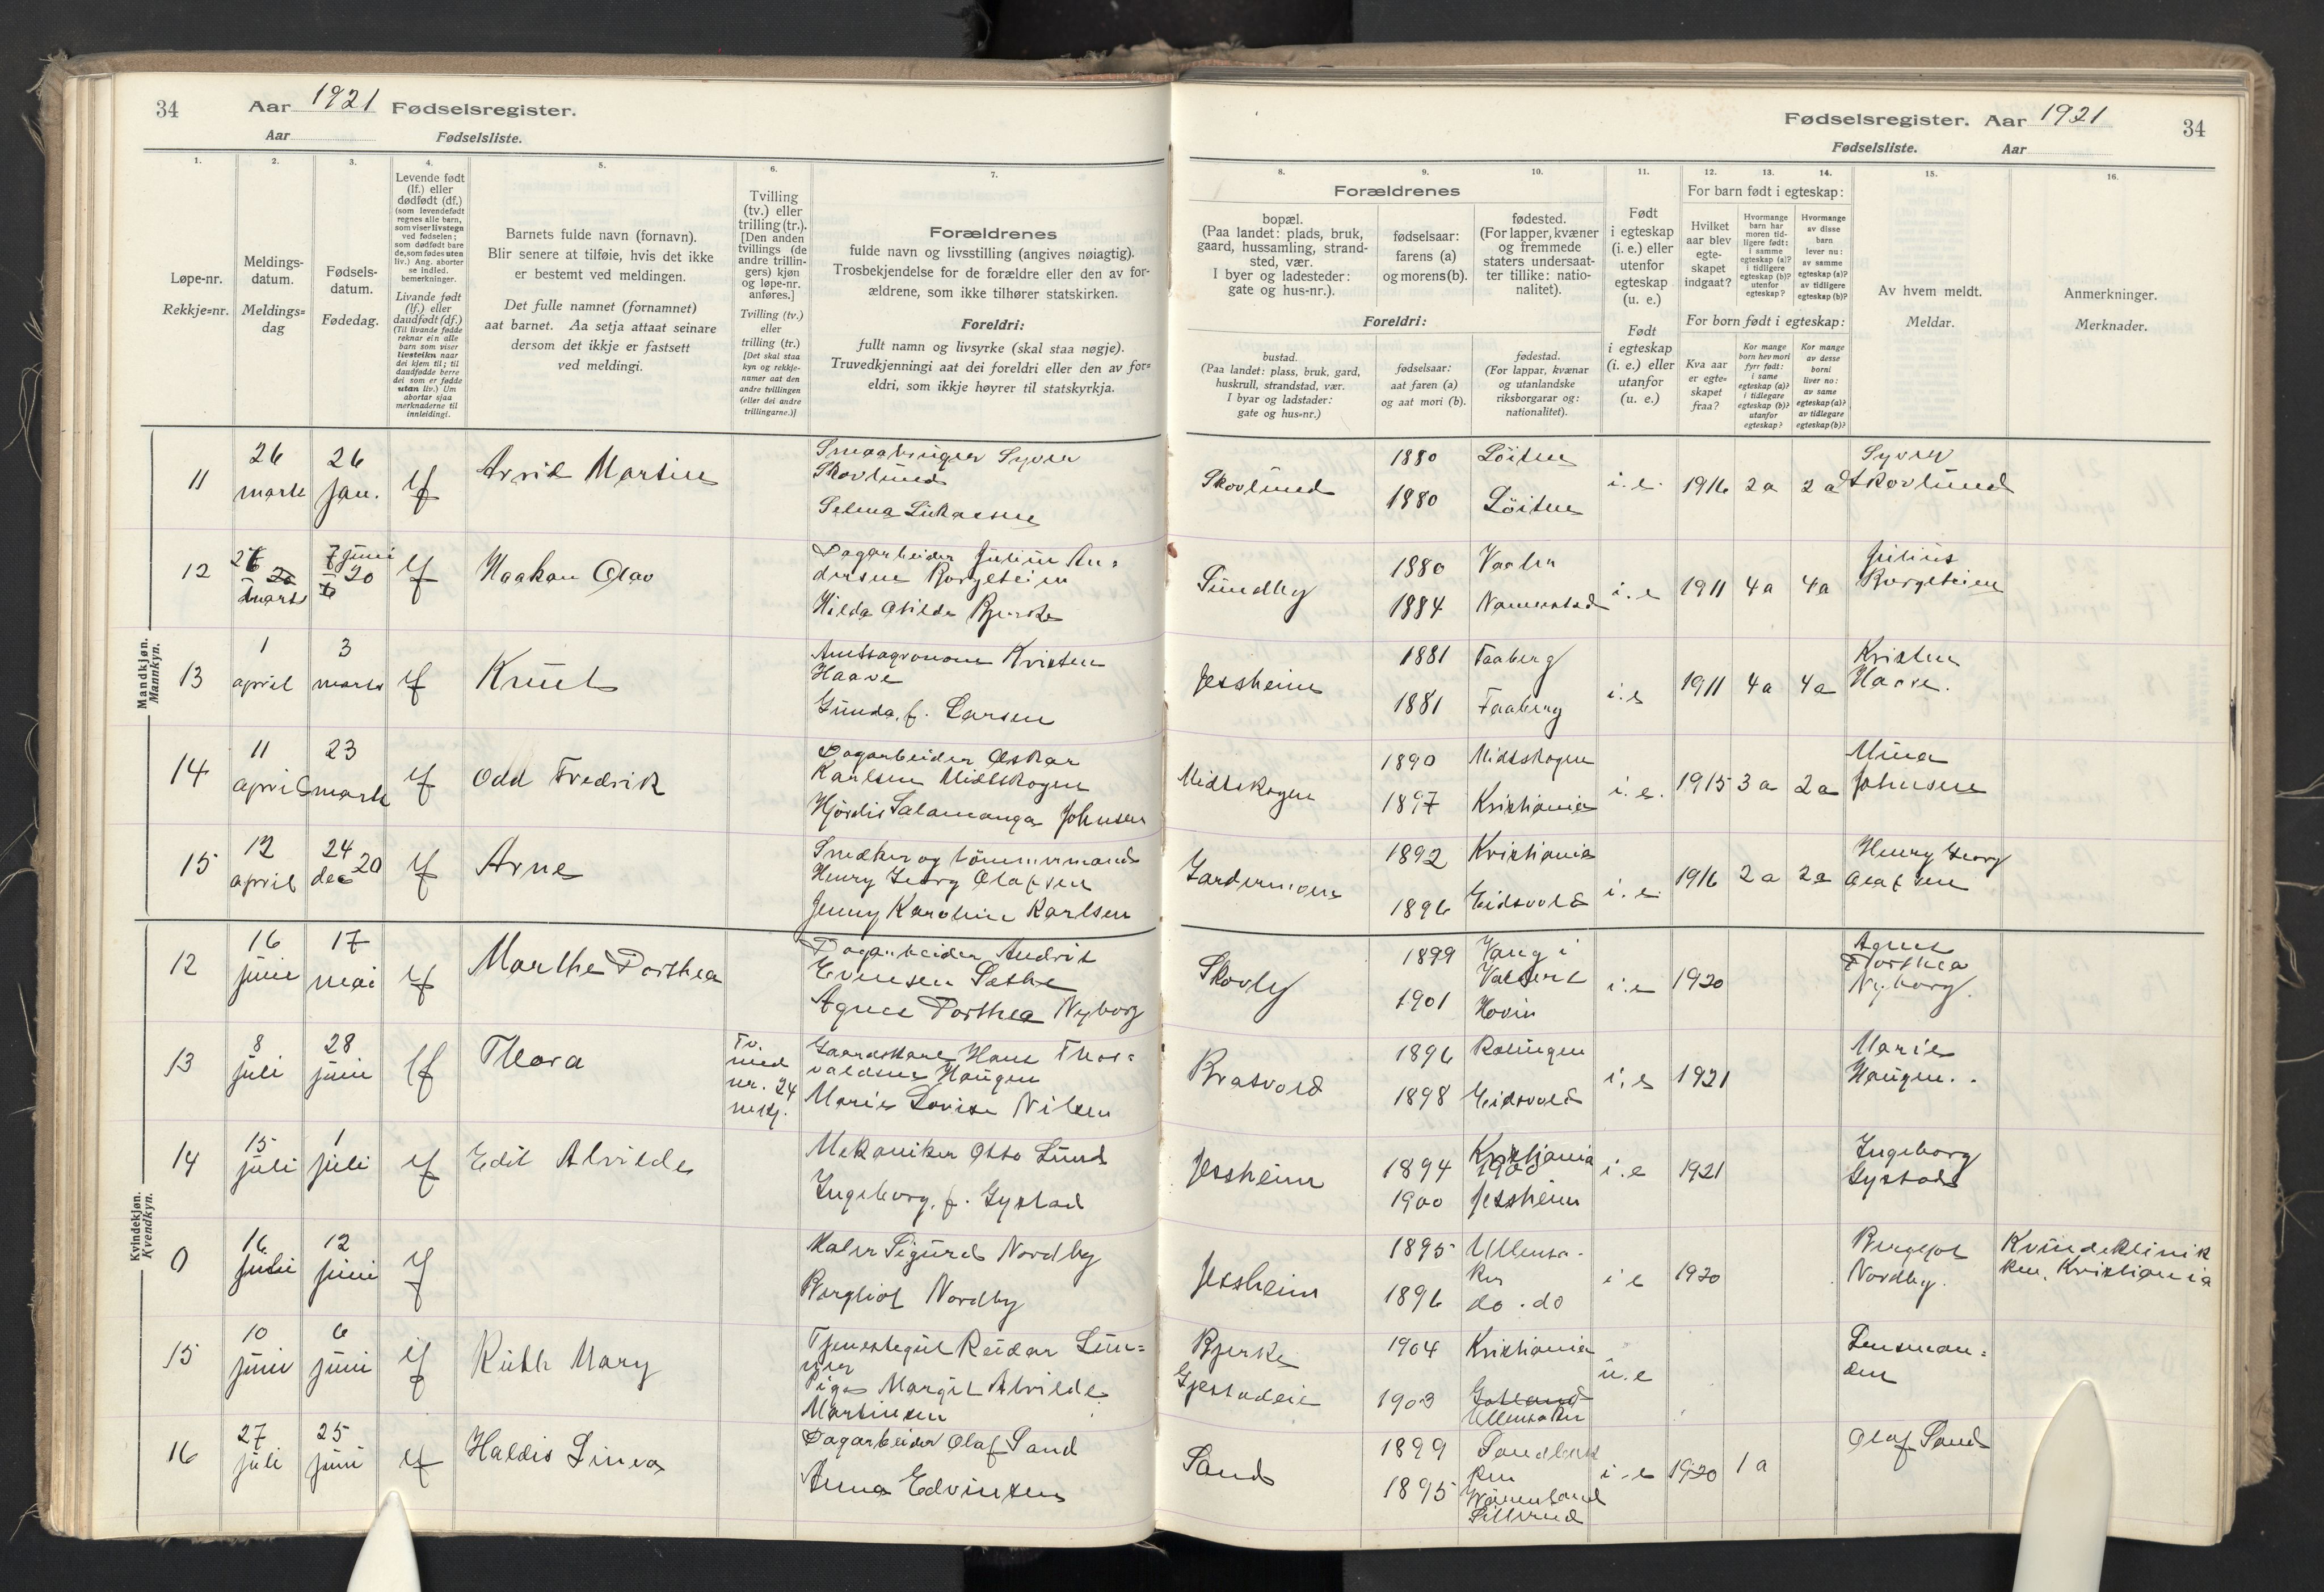 34 Aar 1921 Fødselsregister.
Aar Fødselsliste.
Fødselsregister. Aar 1921 34
Fødselsliste. Aar
1. 2. 3. 4. 5. 6. 7.
Løpe-nr.
Rekkje=nr.
Meldings-
datum.
Meldings=
dag
Fødsels-
datum.
Fødedag.
Levende født
(lf.) eller
dødfødt (df.)
(som levendefødt
regnes alle barn,
som viser livstegn
ved fødselen;
som dødfødt bare
de, som fødes uten
liv.) Ang. aborter
se indled.
bemerkninger.
Livande født
(lf.) eller
daudfødt (df.)
(Til livande fødde
reknar ein alle
barn som viser
livsteikn naar
dei kjem til; til
daudfødde berre
dei som er fødde
utan liv.) Um
abortar sjaa
merknaderne til
innleidingi.
Barnets fulde navn (fornavn).
Blir senere at tilføie, hvis det ikke
er bestemt ved meldingen.
Det fulle namnet (fornamnet)
aat barnet. Aa setja attaat seinare
dersom det ikkje er fastsett
ved meldingi.
Tvilling
(tv.) eller
trilling (tr.).
[Den anden
tvillings (de
andre trillin-
gers) kjøn
og løpe-nr.
anføres.]
Tvilling (tv.)
eller
trilling (tr.)
[Det skal staa
kyn og rekkje-
numer aat den
andre tvillingen
(eller dei andre
trillingarne.)]
Forældrenes
fulde navn og livsstilling (angives nøiagtig).
Trosbekjendelse for de forældre eller den av for-
ældrene, som ikke tilhører statskirken.
Foreldri:
fullt namn og livsyrke (skal staa nøgje).
Truvedkjenningi aat dei foreldri eller den av for=
eldri, som ikkje høyrer til statskyrkja.
8. 9. 10. 11. 12. 13. 14. 15. 16.
Forældrenes
bopæl.
(Paa landet: plads, bruk,
gaard, hussamling, strand-
sted, vær.
I byer og ladesteder:
gate og hus-nr.).
fødselsaar:
farens (a)
og morens (b).
fødested.
(For lapper, kvæner
og fremmede
staters undersaat-
ter tillike: natio-
nalitet).
Foreldri:
bustad.
(Paa landet: plass, bruk, gard,
huskrull, strandstad, vær.
I byar og ladstader:
gate og hus=nr.)
fødselsaar:
aat faren (a)
og aat mori (b).
fødestad.
(For lappar, kvænar
og utanlandske
riksborgarar og:
nationalitet).
Født
i egteskap
(i. e.) eller
utenfor
egteskap
(u. e.)
Født
i egteskap
(i. e.) eller
utanfor
egteskap
(u. e.)
For barn født i egteskap:
Hvilket
aar blev
egte-
skapet
indgaat?
Hvormange
barn har
moren tid-
ligere født:
i samme
egteskap (a)?
i tidligere
egteskap (b)?
utenfor
egteskap?
Hvormange
av disse
barn
lever nu:
av samme
egteskap (a)?
av tidligere
egteskap (b)?
For born født i egteskap:
Kva aar
er egte=
skapet
fraa?
Kor mange
born hev mori
fyrr født:
i same
egteskap (a)?
i tidlegare
egteskap (b)?
utanfor
egteskap?
Kor mange
av desse
borni
liver no:
av same
egteskap (a)?
av tidlegare
egteskap (b)?
Av hvem meldt.
Meldar.
Anmerkninger.
Merknader.
Mandkjøn.
Mannkyn.
11 26 mars 26 jan. lf Arvid Martin
Smaabruger Syver
Skovlund
Selma Lukassen
Skovlund 1880 Löiten
1880 Löiten
i. e. 1916 2a 2a Syver
Skovlund
12 26 mars 7 juni 20 lf Haakon Olav
Dagarbeider Julius An=
dersen Borgesteien
Hilda Otilde Bjerke
Sundby 1880 Vaaler
1884 Nannestad
i. e 1911 4a 4a Julius
Borgesteien
13 1 april 3 mars lf Knut
Amtsagronom Kristen
Haave
Gunda, f. Larsen
Jessheim 1881 Faaberg
1881 Faaberg
i. e 1911 4a 4a Kristen
Haave.
14 11 april 23 mars lf Odd Fredrik
Dagarbeider Oskar
Karlsen Midtskogen
Hjördis Salamanga Johnsen
Midtskogen 1890 Midtskogen
1897 Kristiania
i. e. 1915 3a 2a Mina
Johnsen
15 12 april 24 dec 20 lf Arne
Snedker og tömmermand
Henry Georg Olafsen
Jenny Karoline Karlsen
Gardermoen 1892 Kristiania
1896 Eidsvold
i. e. 1916 2a 2a Henry Georg
Olafsen
Kvindekjøn.
Kvendkyn.
12 16 juni 17 mai lf Marthe Dorthea
Dagarbeider Andris
Evensen Sæthe
Agnes Dorthea Nyborg
Skovly 1899 Vang i
Valdres
1901 Hovin
i. e 1920 Agnes
Dorthea
Nyborg.
13 8 juli 28 juni lf Thora Tv.
med
nr. 24
mkj.
Gaardskar Hans Thor=
valdsen Haugen
Marie Lovise Nilsen
Brasvold 1896 Rælingen
1898 Eidsvold
i. e 1921 Marie
Haugen.
14 15 juli 1 juli lf Edit Alvilde
Mekaniker Otto Lund
Ingeborg, f. Gystad
Jessheim 1894 Kristiania
1900
1900 Jessheim
i. e 1921 Ingeborg
Gystad
0 16 juli 12 juni lf
Maler Sigurd Nordby
Bergliot Nordby
Jessheim 1895 Ullensa-
ker
1896 do. do
i e 1920 Bergliot
Nordby.
Kvindeklinik
ken, Kristiania
15 10 juni 6 juni lf Ruth Mary
Tjenestegut Reidar Lun=
der
Pige Margit Alvilde
Martinsen
Bjerke
Gjestadeie
1904 Kristiania
1903 Gotland
Ullensaker
u. e Lensman=
den
16 27 juli 25 juni lf Haldis Linea
Dagarbeider Olaf Sand
Anna Edvinsen
Sand 1899 Sandbak
ken
1895 Wärmland
Sillerud
i. e 1920 1a Olaf Sand